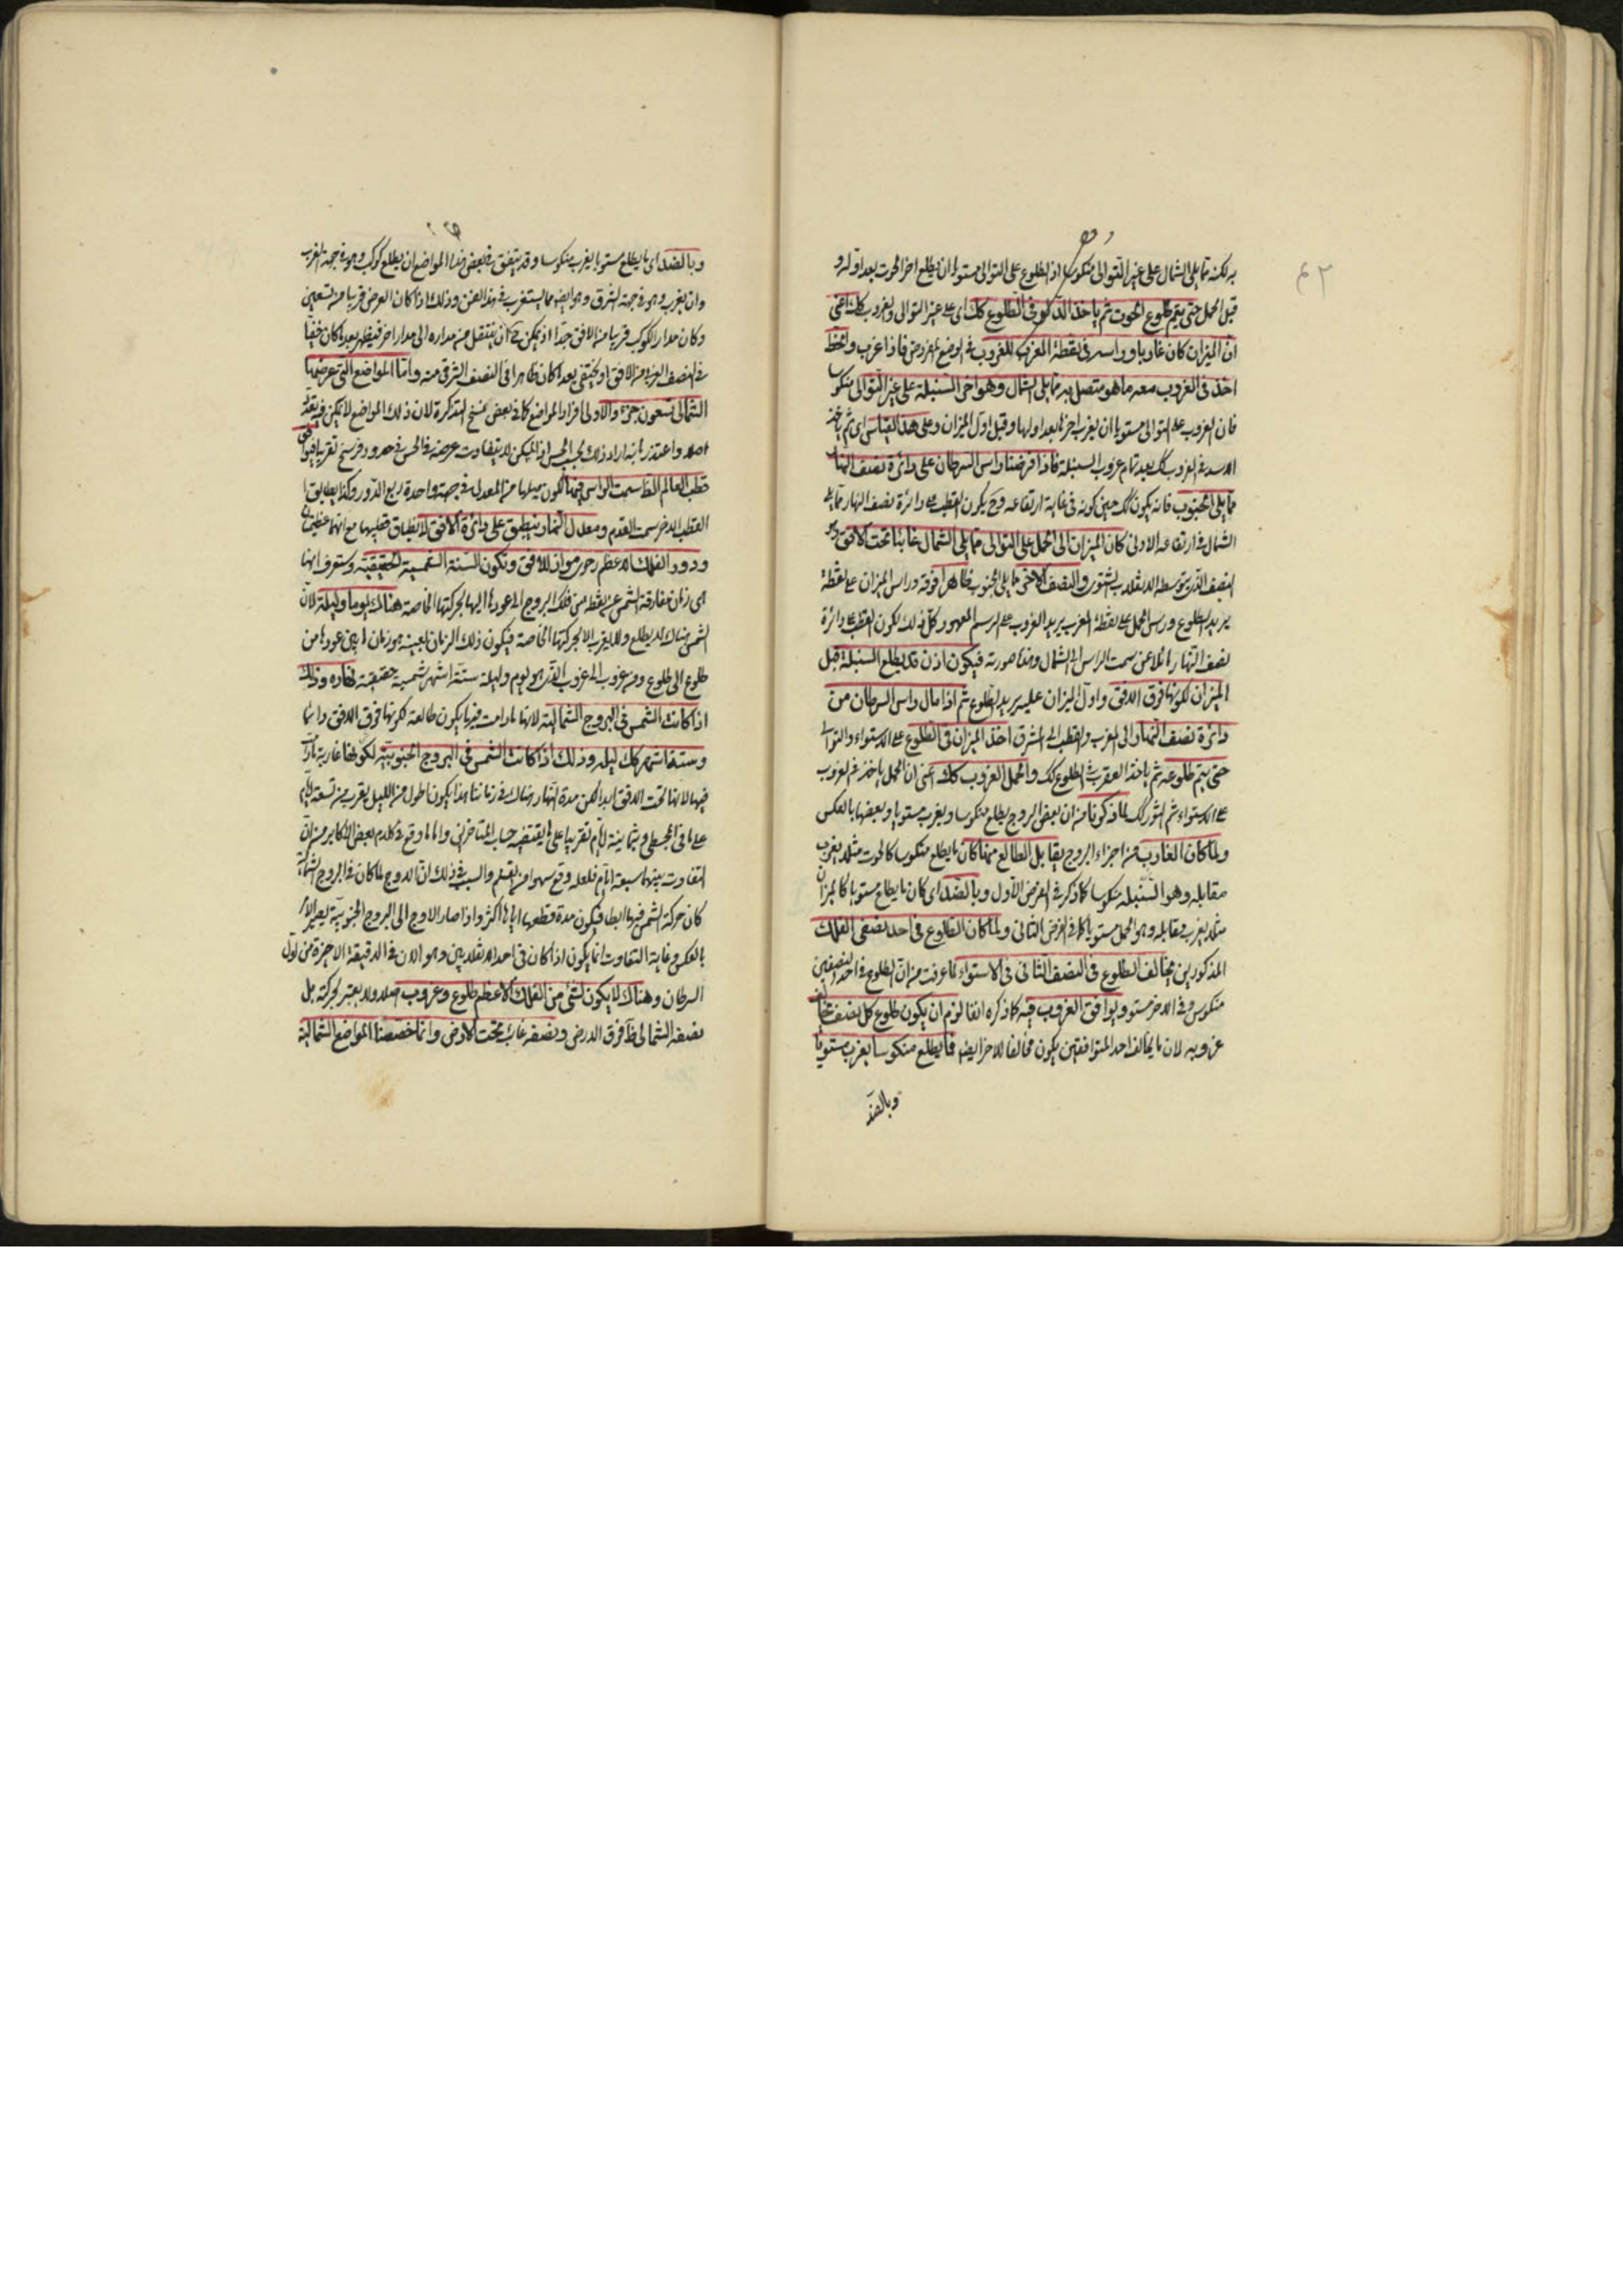 به لكنه مما يلى الشمال على غير التوالى منكوسا اذ الطلوع على التوالى مستويا ان يطلع اخر الحوت بعد اوله و
قبل الحمل حتى يتم طلوع الحوت ثم ياخذ الدلو فى الطلوع كك اى على غير التوالى والغروب كك اعنى
ان الميزان كان غاربا وراسه فى نقطة المغرب للغروب فى الوضع المفروض فاذا غرب وانحط
اخذ فى الغروب معه ما هو متصل به مما يلى الشمال وهو اخر السنبلة على غير التوالى منكوسا
فان الغروب على التوالى مستويا ان يغرب اخرها بعد اولها وقبل اول الميزان وعلى هذا القياس اى ثم ياخذ
الاسد فى الغروب كك بعد تمام غروب السنبلة فاذا فرضنا راس السرطان على دائرة نصف النهار
مما يلى الجنوب فانه يكون كك حين كونه فى غاية ارتفاعه وح يكون القطب على دائرة نصف النهار مما يلى
الشمال فى ارتفاعه الادنى كان الميزان الى الحمل على التوالى مما يلى الشمال غائبا تحت الافق وهو
النصف الذى يتوسطه الانقلاب الشتوى والنصف الاخر مما يلى الجنوب ظاهرا فوقه وراس الميزان على نقطة
يريد الطلوع وراس الحمل على نقطة المغرب يريد الغروب على الرسم المعهود كل ذلك لكون القطب على دائرة
نصف النهار مائلا عن سمت الراس الى الشمال وهذا صورته فيكون اذن قد يطلع السنبلة قبل
الميزان لكونها فوق الافق واول الميزان عليه يريد الطلوع ثم اذا مال راس السرطان من
دائرة نصف النهار الى المغرب والقطب الى المشرق اخذ الميزان فى الطلوع على الاستواء والتوالى
حتى يتم طلوعه ثم ياخذ العقرب فى الطلوع كك والحمل الغروب كك اعنى ان الحمل ياخذ فى الغروب
على الاستواء ثم الثور كك لما ذكرنا من ان بعض البروج يطلع منكوسا ويغرب مستويا وبعضها بالعكس
ولما كان الغارب من اجزاء البروج يقابل الطالع منها كان ما يطلع منكوسا كالحوت مثلا يغرب
مقابله وهو السنبلة منكوسا كما ذكر فى الفرض الاول وبالضد اى كان ما يطلع مستويا كالميزان
مثلا يغرب مقابله وهو الحمل مستويا كما فى الفرض الثانى ولما كان الطلوع فى احد نصفى الفلك
المذكورين يخالف الطلوع فى النصف الثانى فى الاستواء لما عرفت من ان الطلوع فى احد النصفين
منكوس وفى الاخر مستو ويوافق الغروب فيه كما ذكره انفا لزم ان يكون طلوع كل نصف يخالف
غروبه لان ما يخالف احد المتوافقين يكون مخالفا للاخر ايضا فما يطلع منكوسا يغرب مستويا
وبالضد
وبالضد اى ما يطلع مستويا يغرب منكوسا وقد يتفق فى بعض هذه المواضع ان يطلع كوكب وهو فى جهة الغرب
وان يغرب وهو فى جهة الشرق وهو ايضا مما يستغرب فى هذا الفن وذلك اذا كان العرض قريبا من تسعين
وكان مدار الكوكب قريبا من الافق جدا اذ يمكن ح ان ينتقل من مداره الى مدار اخر فيظهر بعد ما كان خفيا
فى النصف الغربى من الافق او يختفى بعد ما كان ظاهرا فى النصف الشرقى منه واما المواضع التى عرضها
الشمالى تسعون جزءا والاولى افراد المواضع كما فى بعض نسخ التذكرة لان ذلك المواضع لا يمكن فيه تعدد
اصلا واعتذر بانه اراد ذلك بحسب الحس اذ يمكن الا يتفاوت عرضه فى الحس فى حدود فرسخ تقريبا فيوافى
قطب العالم الظ سمت الراس فيها لكون ميلها من المعدل فى جهة واحدة ربع الدور وكذا يطابق
القطب الاخر سمت القدم ومعدل النهار ينطبق على دائرة الافق لانطباق قطبيهما مع انهما عظيمتان
ودور الفلك الاعظم رحوى مواز للافق وتكون السنة الشمسية الحقيقية وستعرف انها
هى زمان مفارقة الشمس عن نقطة من فلك البروج الى عودها اليها بحركتها الخاصة هناك يوما وليلة لان
الشمس هناك لا يطلع ولا يغرب الا بحركتها الخاصة فيكون ذلك الزمان بعينه هو زمان ما بين عودها من
طلوع الى طلوع ومن غروب الى غروب الذى هو يوم وليلة ستة اشهر شمسية حقيقية نهاره وذلك
اذا كانت الشمس فى البروج الشمالية لانها ما دامت فيها يكون طالعة لكونها فوق الافق دائما
وستة اشهر كك ليله وذلك اذا كانت الشمس فى البروج الجنوبية لكونها غاربة ما دامت
فيها لانها تحت الافق ابدا لكن مدة النهار هناك فى زماننا هذا يكون اطول من الليل بقرب من تسعة ايام
على ما فى المجسطى وبثمانية ايام تقريبا على ما يقتضيه حساب المتاخرين واما ما وقع فى كلام بعض الاكابر من ان
التفاوت بينهما سبعة ايام فلعله وقع سهوا من القلم والسبب فى ذلك ان الاوج لما كان فى البروج الشمالية
كان حركة الشمس فيها ابطا فيكون مدة قطعها اياها اكثر واذا صار الاوج الى البروج الجنوبية يصير الامر
بالعكس وغاية التفاوت انما يكون اذا كان فى احد الانقلابين وهو الان فى الدقيقة الاخيرة من اول
السرطان وهناك لا يكون لشئ من الفلك الاعظم طلوع وغروب اصلا ولا يعتبر لحركته بل
نصفه الشمالى ظ فوق الارض ونصفه غارب تحت الارض وانما خصصنا المواضع الشمالية